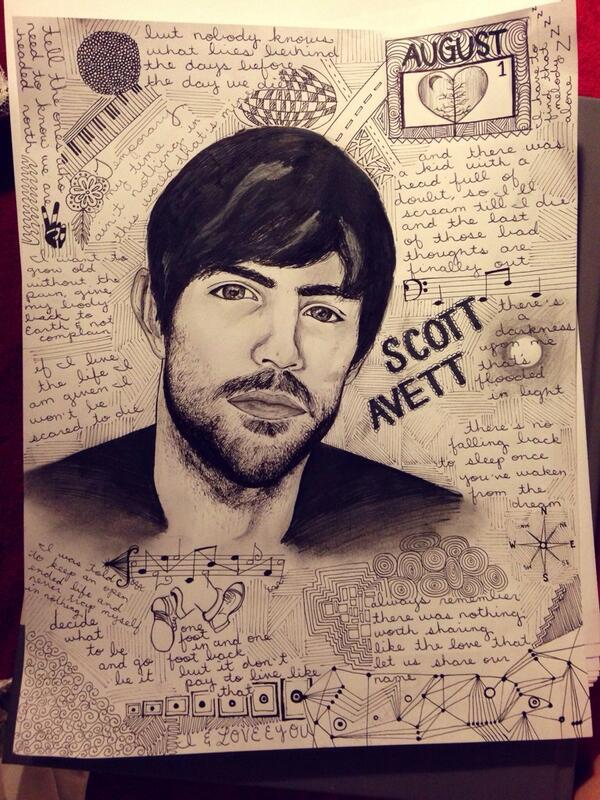 tell the ones who
need to know we are
headed north
but nobody knows
what lies behind
the days before
the day we
AUGUST
1
zzzzz
my time
ain't nothing in
this world that
and there was
a kid with a
head full of
doubt, so I'll
scream till I die
and the last
of those bad
thoughts are
finally out
I want to
grow old
without the
pain, give
my body
back to
Earth & not
complain
if I live
the life I
am given I
won't be
scared to die
SCOTT
AVETT
there's
a
darkness
upon me
that's
flooded
in light
there's no
falling back
to sleep once
you've waken
from the
dream
N
NE
E
SE
S
SW
W
NW
I was told
to keep an open
ended life and
never trap myself
in nothing
decide
what
to be
and go
be it
one
foot
in and one
foot back
but it don't
pay to live like
that
always remember
there was nothing
worth sharing
like the love that
let us share our
name
I & LOVE & YOU